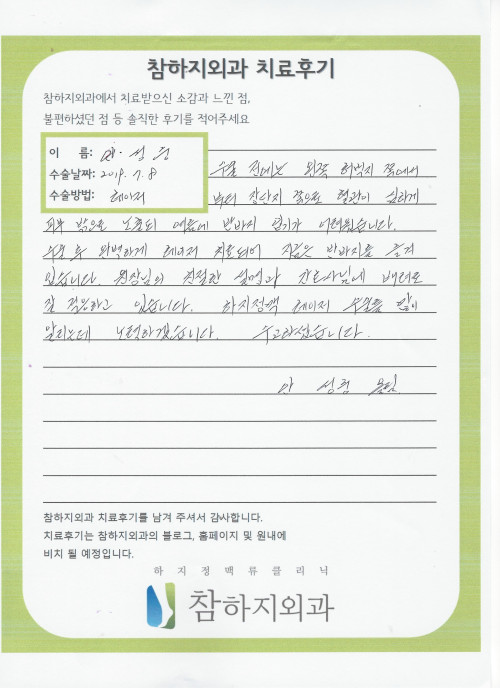 참하지외과 치료후기
참하지외과에서 치료받으신 소감과 느낀 점,
불편하셨던 점 등 솔직한 후기를 적어주세요
이 름: 안 · 성
수술날짜: 2019. 7. 8
수술방법: 레이저
수술 전에는 왼쪽 허벅지 쪽에서
부터 장단지 쪽으로 혈관이 심하게
피부 밖으로 노출되 여름에 반바지 입기가 어려웠습니다.
수술 후 완벽하게 레이저 치료되어 지금은 반바지를 즐겨
입습니다. 원장님의 친절한 설명과 간호사님에 배려로
잘 적응하고 있습니다. 하지정맥 레이저 수술을 많이
알리는데 노력하겠습니다. 수고하셨습니다.
안 성
참하지외과 치료후기를 남겨 주셔서 감사합니다.
치료후기는 참하지외과의 블로그, 홈페이지 및 원내에
비치 될 예정입니다.
하지정맥류클리닉
참하지외과